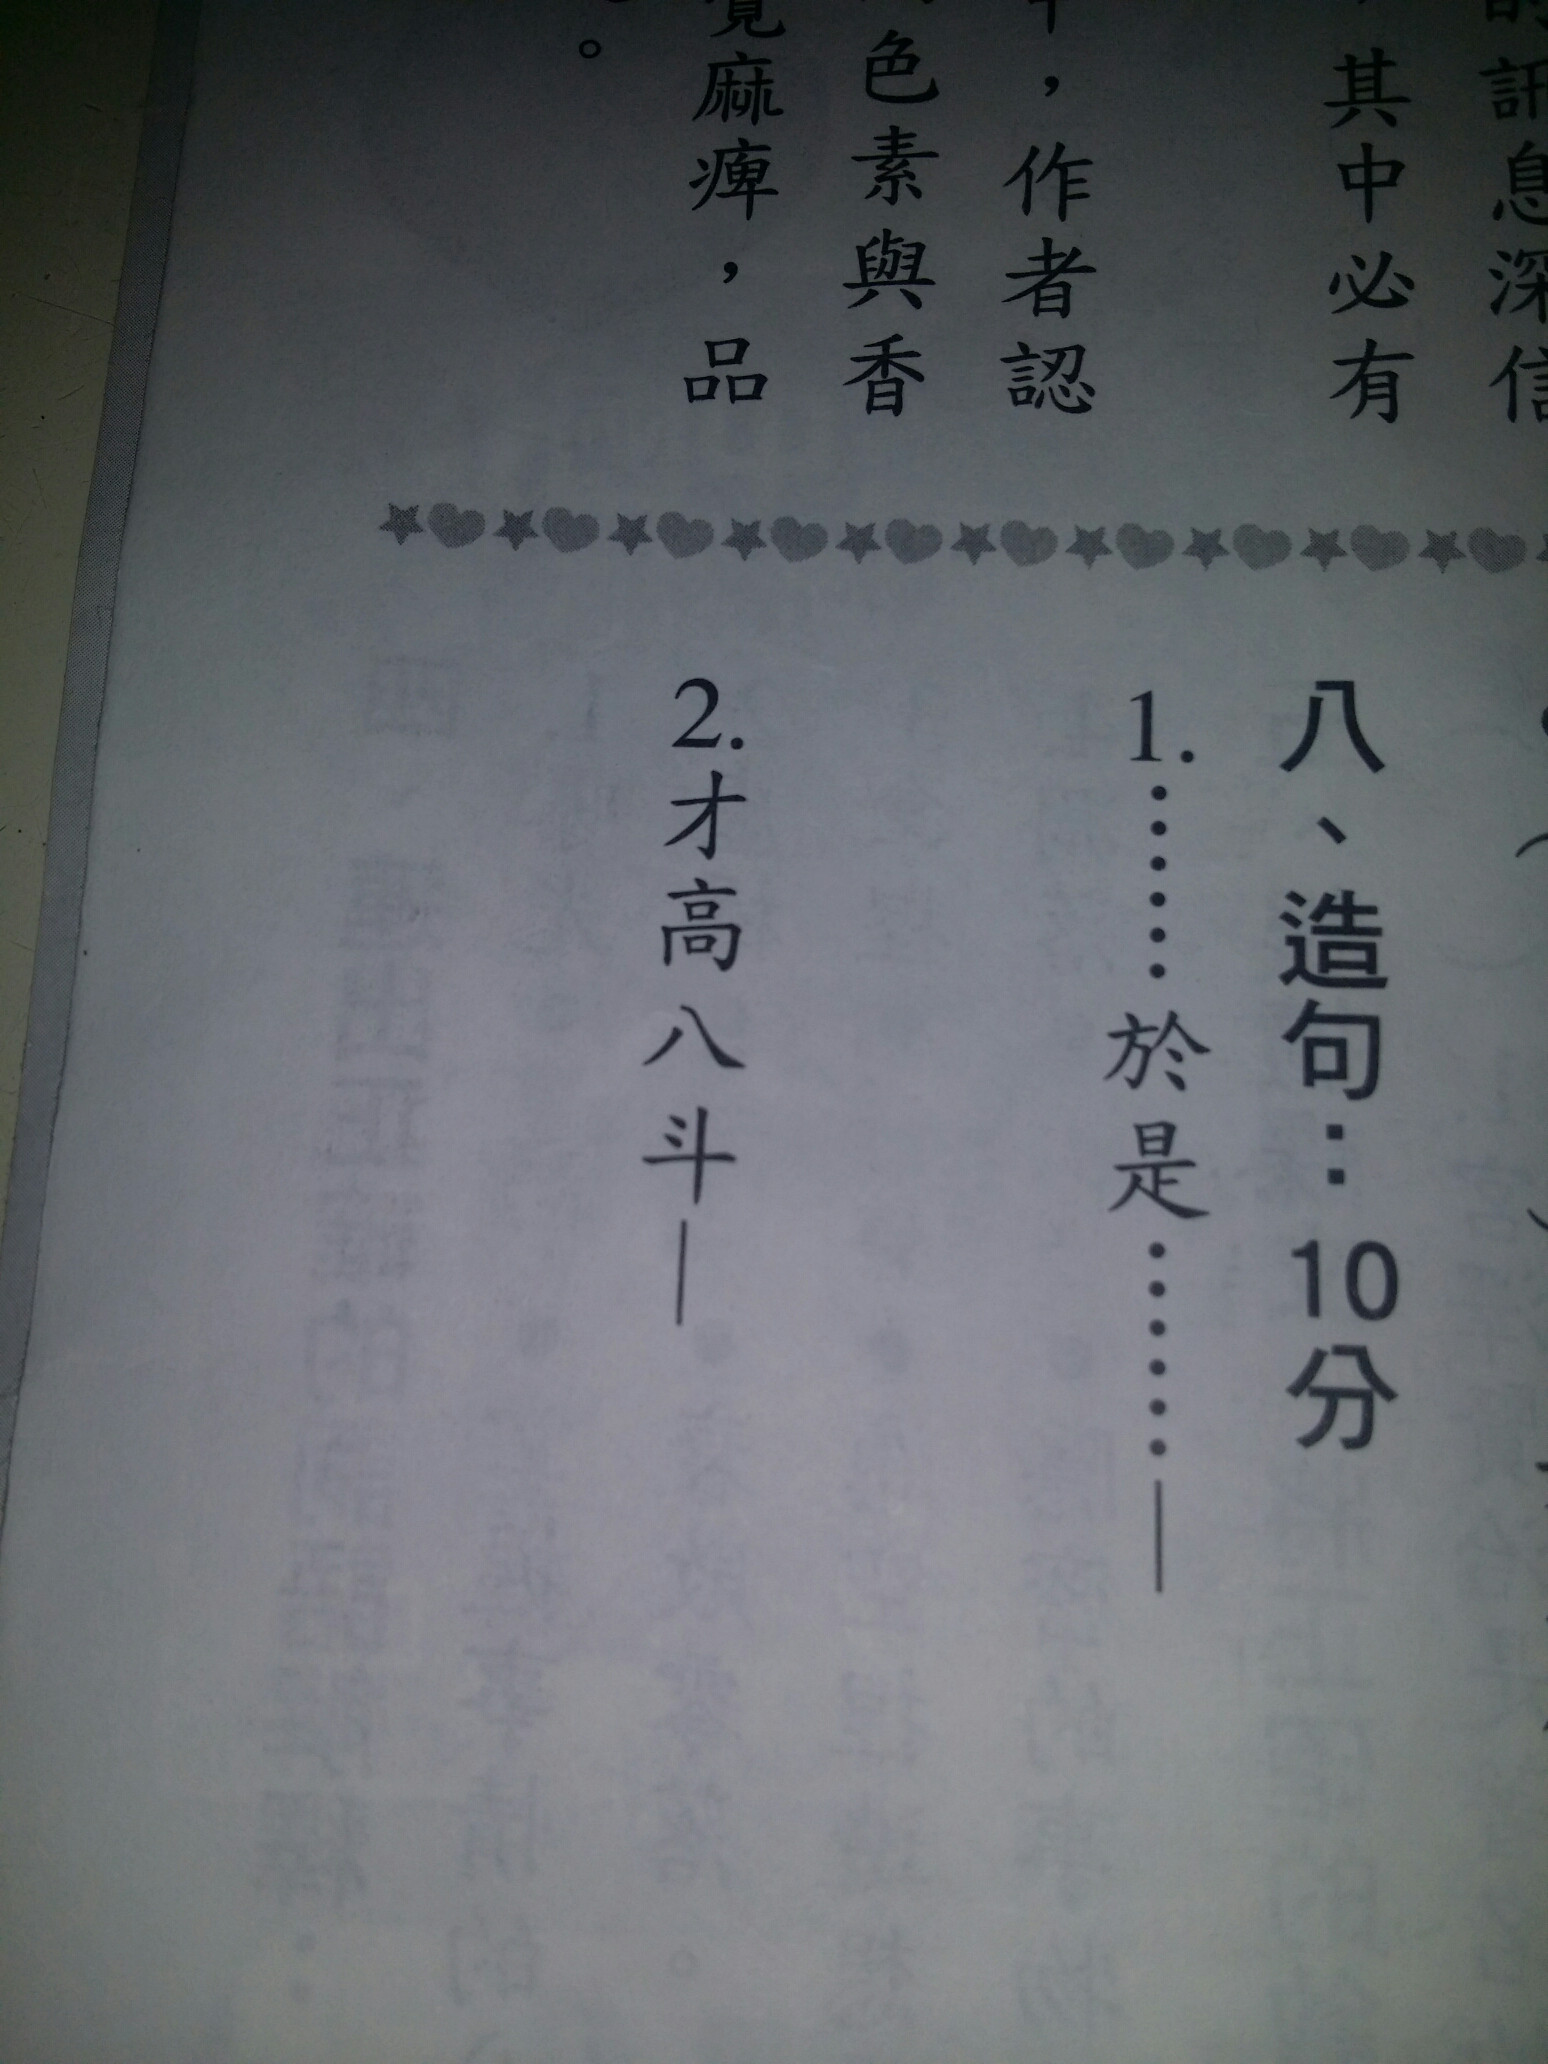 訊息深信
其中必有
，作者認
色素與香
覺麻痺，品
。
八、造句：10分
1.……於是……—
2.才高八斗—